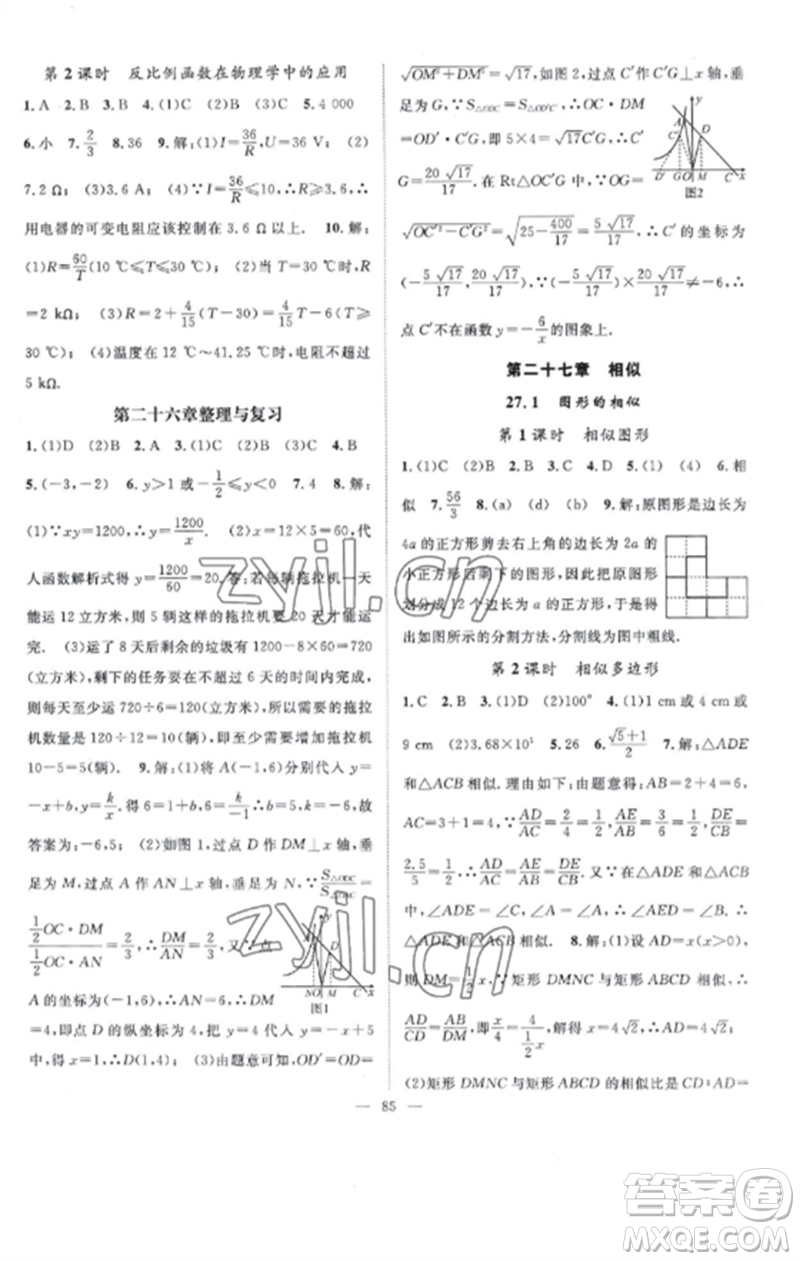 第2课时　反比例函数在物理学中的应用
1.A　2.B　3.B　4.(1)C　(2)B　(3)C　5.4 000
6.小　7.2/3　8.36　9.解:(1)I=36/R,U=36 V;　(2)
7.2 Ω;　(3)3.6 A;　(4)∵I=36/R≤10,∴R≥3.6,∴
用电器的可变电阻应该控制在3.6 Ω以上.　10.解:
(1)R=60/T(10 ℃≤T≤30 ℃);　(2)当T=30 ℃时,R
=2 kΩ;　(3)R=2+4/15(T-30)=4/15T-6(T≥
30 ℃);　(4)温度在12 ℃～41.25 ℃时,电阻不超过
5 kΩ.
第二十六章整理与复习
1.(1)D　(2)B　2.A　3.(1)B　(2)C　(3)C　4.B
5.(-3,-2)　6.y>1或-1/2≤y<0　7.4　8.解:
(1)∵xy=1200,∴y=1200/x.　(2)x=12×5=60,代
入函数解析式得y=1200/60=20.答:若每辆拖拉机一天
能运12立方米,则5辆这样的拖拉机要20天才能运
完.　(3)运了8天后剩余的垃圾有1200-8×60=720
(立方米),剩下的任务在不超过6天的时间内完成,
则每天至少运720÷6=120(立方米),所以需要的拖拉
机数量是120÷12=10(辆),即至少需要增加拖拉机
10-5=5(辆).　9.解:(1)将A(-1,6)分别代入y=
-x+b,y=k/x,得6=1+b,6=k/-1∴b=5,k=-6,故
答案为:-6,5;　(2)如图1,过点D作DM⊥x轴,垂
足为M,过点A作AN⊥x轴,垂足为N,∵S△ODC/S△OAC=
(1/2OC·DM)/(1/2OC·AN)=2/3,∴DM/AN=2/3,又∵点
A的坐标为(-1,6),∴AN=6,∴DM
=4,即点D的纵坐标为4,把y=4代入y=-x+5
中,得x=1,∴D(1,4);　(3)由题意可知,OD′=OD=
y
A
D
NO M C x
图1
√(OM²+DM²)=√17,如图2,过点C′作C′G⊥x轴,垂
足为G,∵S△ODC=S△OD′C′,∴OC·DM
=OD′·C′G,即5×4=√17C′G,∴C′
G=20√17/17.在Rt△OC′G中,∵OG=
√(OC′²-C′G²)=√(25-400/17)=5√17/17,∴C′的坐标为
(-5√17/17,20√17/17),∵(-5√17/17)×20√17/17≠-6,∴
点C′不在函数y=-6/x的图象上.
y
A
C′ D
D′ GO M C x
图2
第二十七章　相似
27.1　图形的相似
第1课时　相似图形
1.(1)C　(2)B　2.B　3.B　4.D　5.(1)　(4)　6.相
似　7.56/3　8.(a)　(d)　(b)　9.解:原图形是边长为
4a的正方形剪去右上角的边长为2a的
小正方形后剩下的图形,因此要把原图形
划分成12个边长为a的正方形,于是得
出如图所示的分割方法,分割线为图中粗线.
第2课时　相似多边形
1.C　2.B　3.(1)D　(2)100°　4.(1)1 cm或4 cm或
9 cm　(2)3.68×10⁵　5.26　6.(√5+1)/2　7.解:△ADE
和△ACB相似.理由如下:由题意得:AB=2+4=6,
AC=3+1=4,∵AD/AC=2/4=1/2,AE/AB=3/6=1/2,DE/CB=
2.5/5=1/2,∴AD/AC=AE/AB=DE/CB.又∵在△ADE和△ACB
中,∠ADE=∠C,∠AED=∠B,∠A=∠A,∴△ADE
和△ACB相似.　8.解:(1)设AD=x(x>0),
则DM=1/2x,∵矩形DMNC与矩形ABCD相似,∴
AD/CD=AB/DM,即x/4=4/(1/2x),解得x=4√2,∴AD=4√2;
(2)矩形DMNC与矩形ABCD的相似比是CD:AD=
— 85 —
zyjl.cn
zyjl.cn
答案圈
MXQE.COM